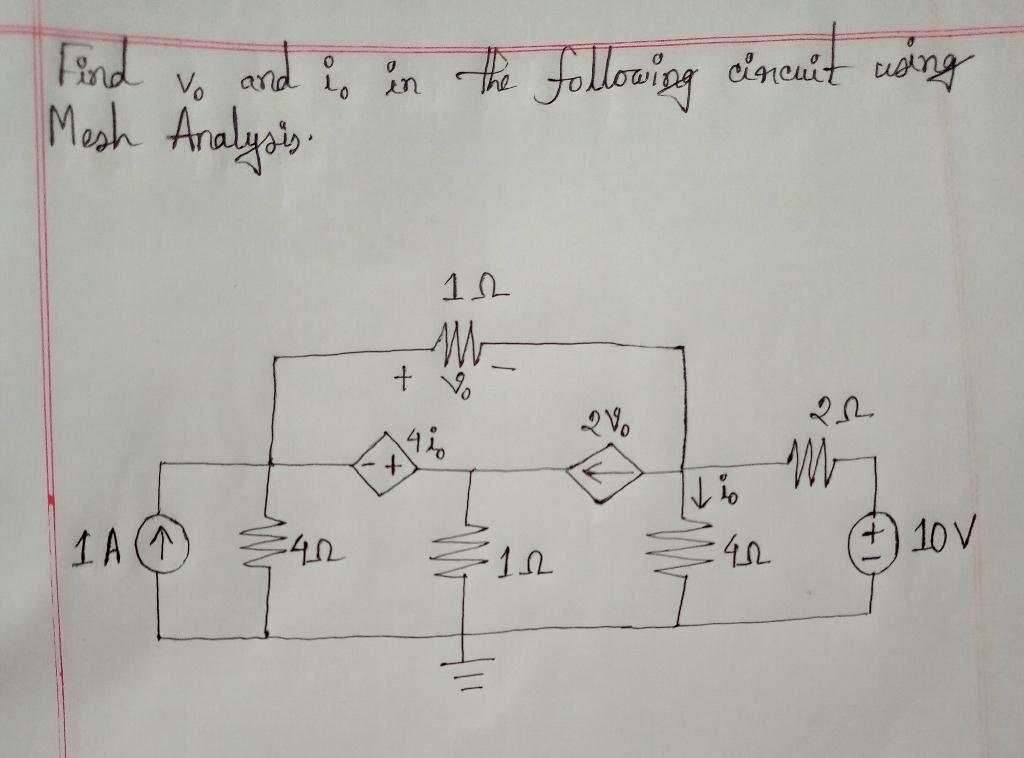 Find v₀ and i₀ in the following circuit using
Mesh Analysis.
1 Ω
+ v₀ −
4 i₀
2 v₀
2 Ω
− +
i₀
1 A
4 Ω
1 Ω
4 Ω
+
−
10 V